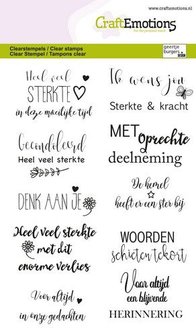 www.craftemotions.nl
CraftEmotions
Clearstempels / Clear stamps
Clear Stempel / Tampons clear
geertje
burgers
Heel veel
STERKTE
in deze moeilijke tijd
Gecondoleerd
Heel veel sterkte
DENK AAN JE
Heel veel sterkte
met dit
enorme verlies
Voor altijd
in onze gedachten
Ik wens jou
Sterkte & kracht
MET oprechte
deelneming
De hemel
heeft er een ster bij
WOORDEN
schieten tekort
Voor altijd
een blijvende
HERINNERING